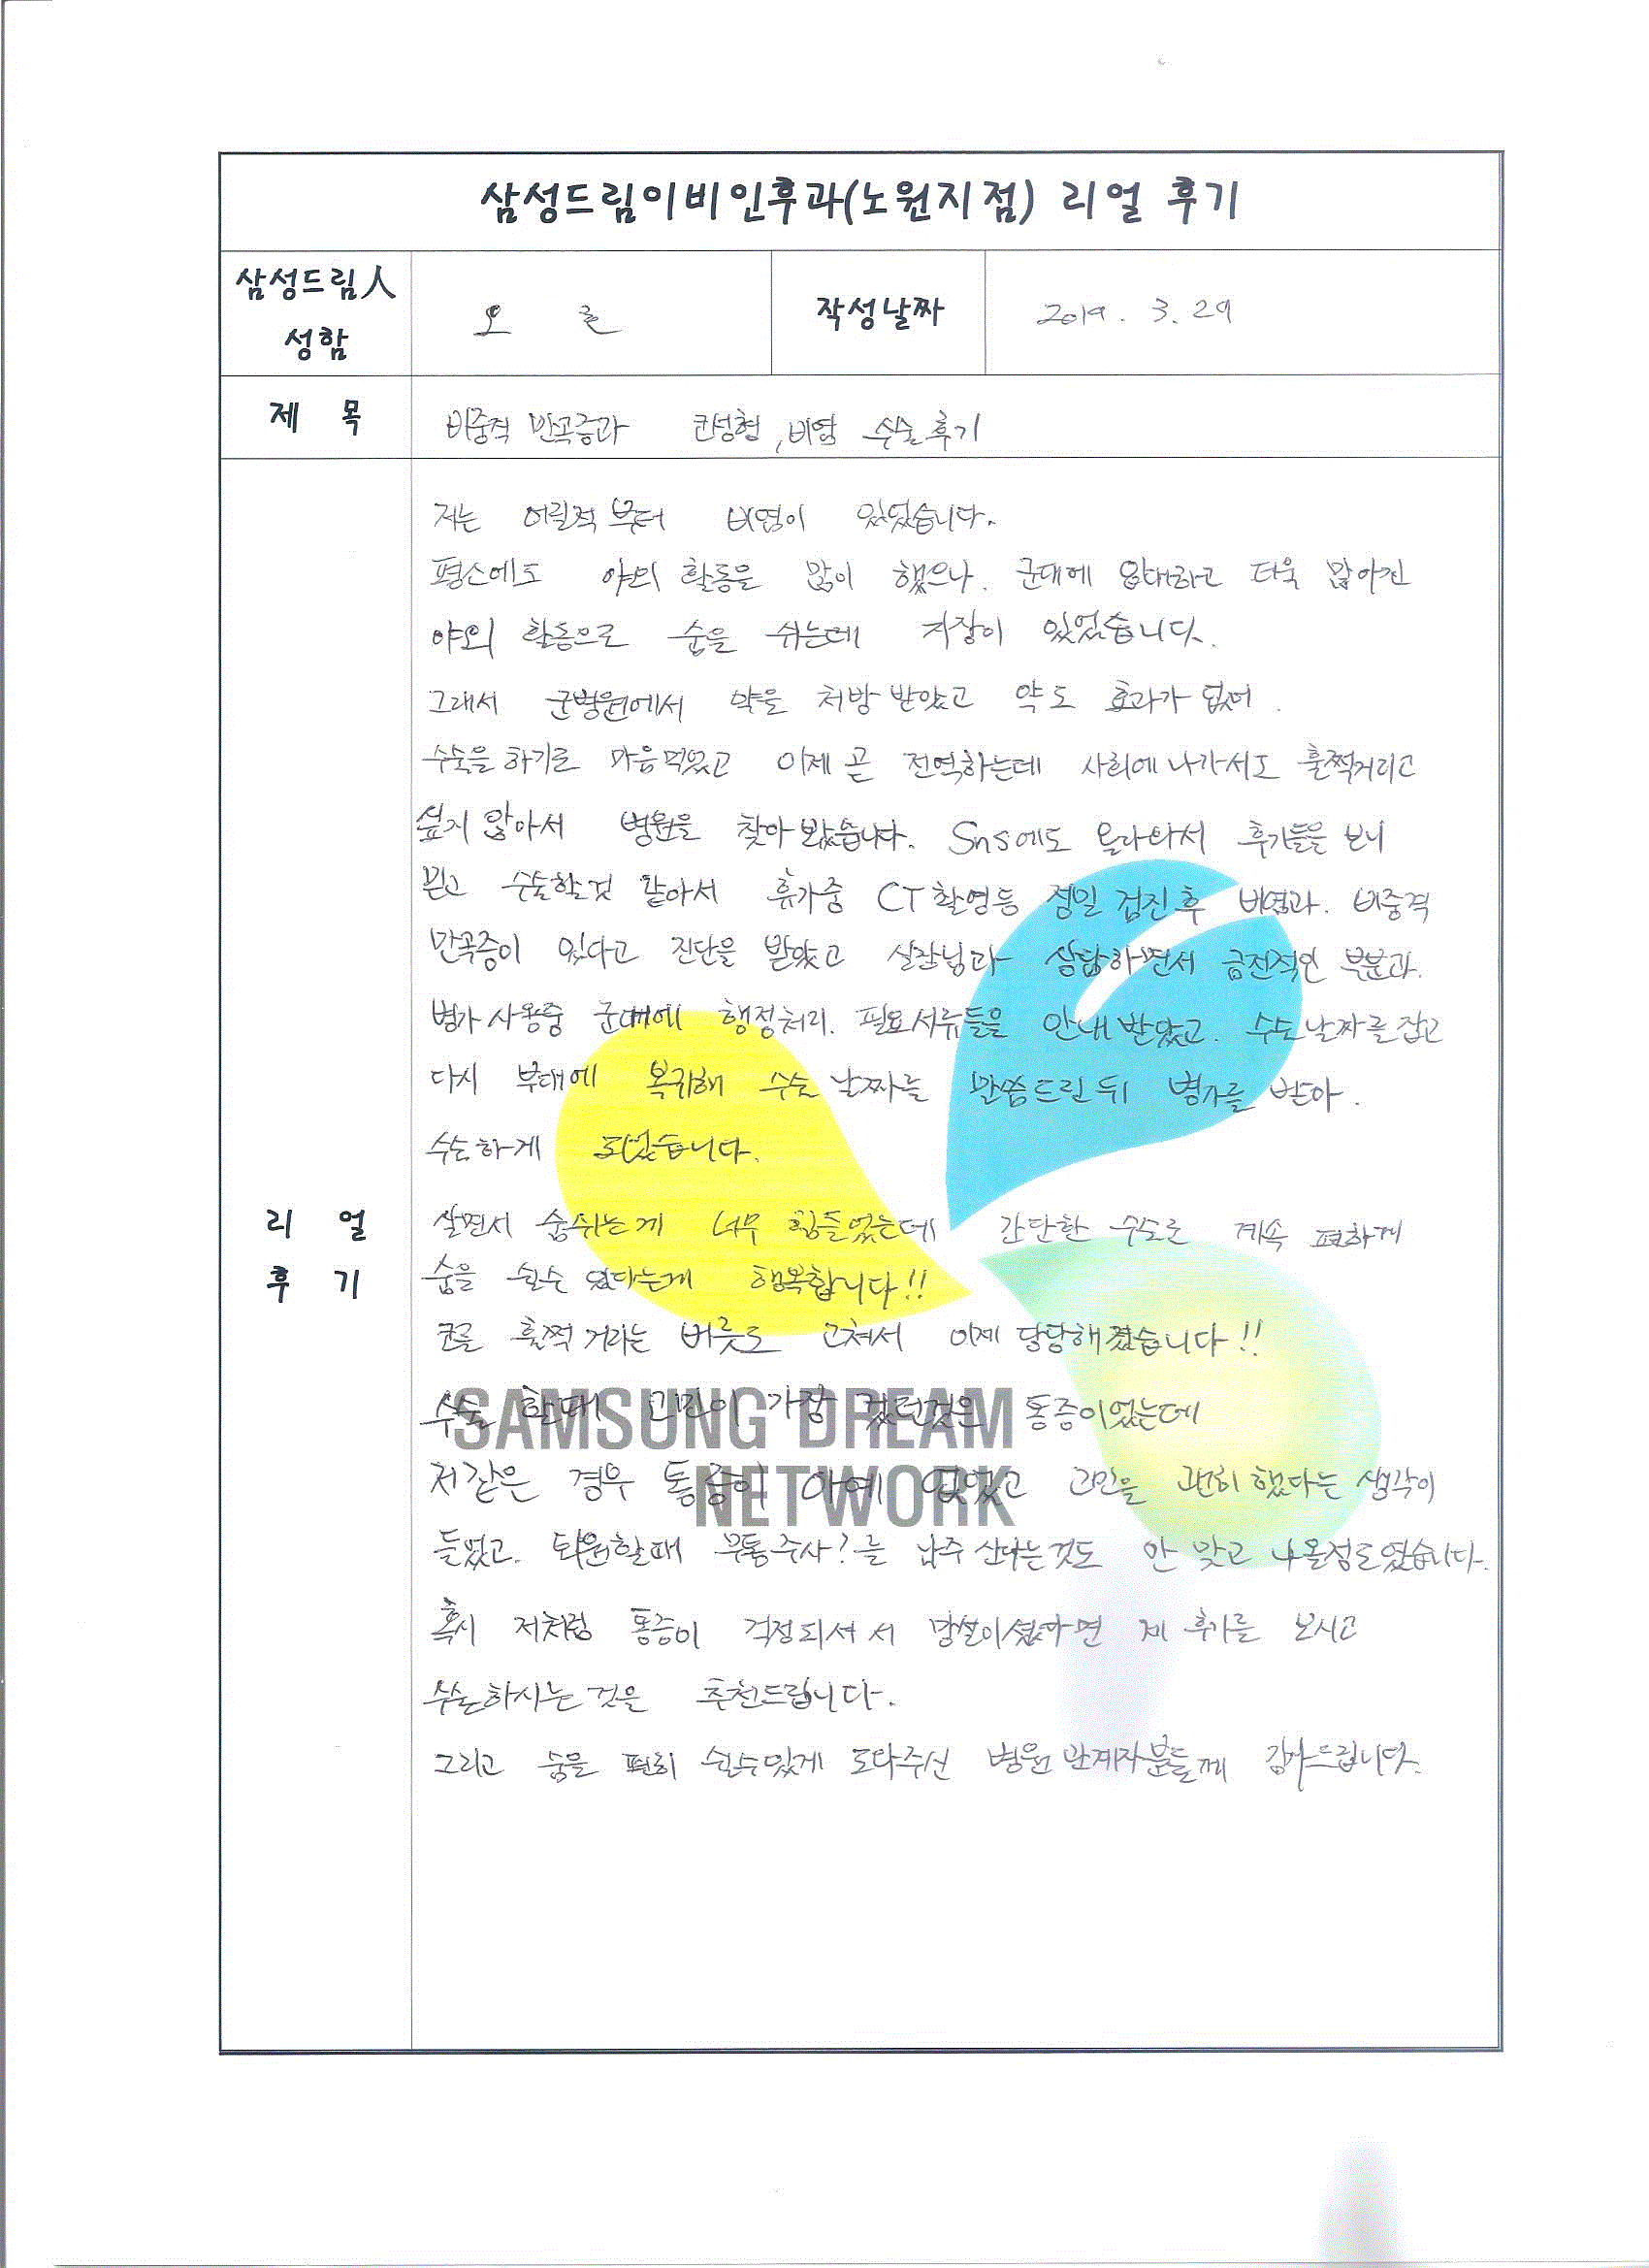 삼성드림이비인후과(노원지점) 리얼 후기
삼성드림人
성함
오 준
작성날짜
2019. 3. 29
제 목
비중격 만곡증과 코성형, 비염 수술후기
리 얼
후 기
저는 어릴적 부터 비염이 있었습니다.
평소에도 야외 활동을 많이 했으나. 군대에 입대하고 더욱 많아진
야외 활동으로 숨을 쉬는데 지장이 있었습니다.
그래서 군병원에서 약을 처방 받았고 약도 효과가 없어.
수술을 하기로 마음먹었고 이제 곧 전역하는데 사회에 나가서도 훌쩍거리고
싶지 않아서 병원을 찾아 봤습니다. Sns에도 올라와서 후기들을 보니
믿고 수술할것 같아서 휴가중 CT 촬영등 정밀 검진후 비염과. 비중격
만곡증이 있다고 진단을 받았고 실장님과 상담하면서 금전적인 부분과.
병가 사용중 군대에 행정처리. 필요서류들을 안내 받았고. 수술날짜를 잡고
다시 부대에 복귀해 수술 날짜를 말씀드린 뒤 병가를 받아.
수술하게 되었습니다.
살면서 숨쉬는게 너무 힘들었는데 간단한 수술로 계속 편하게
숨을 쉴수 있다는게 행복합니다!!
코를 훌쩍 거리는 버릇도 고쳐서 이제 당당해졌습니다!!
수술 할때 고민이 가장 컸던것은 통증이었는데
저같은 경우 통증이 아예 없었고 고민을 괜히 했다는 생각이
들었고. 퇴원할때 무통주사?를 남주 산다는것도 안 맞고 나올정도였습니다.
혹시 저처럼 통증이 걱정되셔서 망설이셨다면 제 후기를 보시고
수술하시는것을 추천드립니다.
그리고 숨을 편히 쉴수있게 도와주신 병원 관계자분들께 감사드립니다.
SAMSUNG DREAM
NETWORK